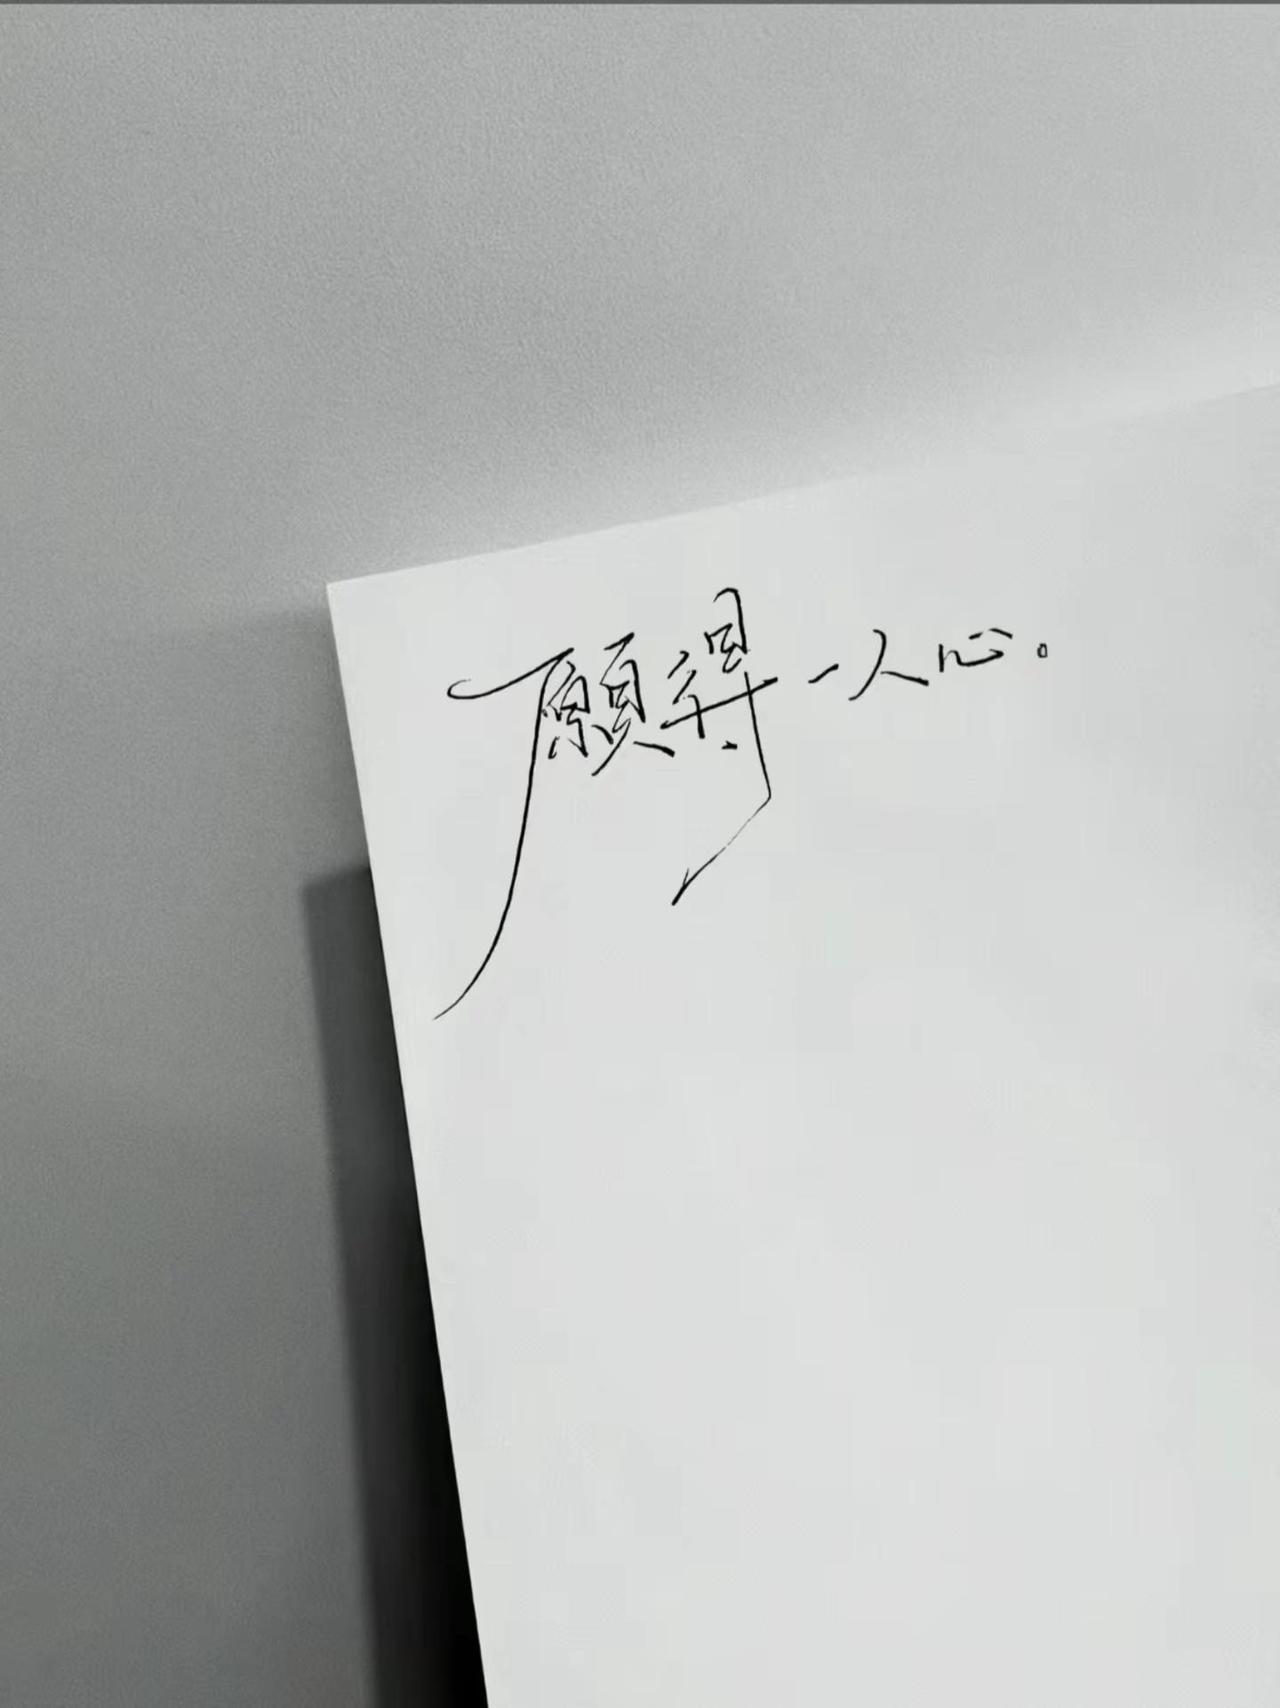 願得一人心。